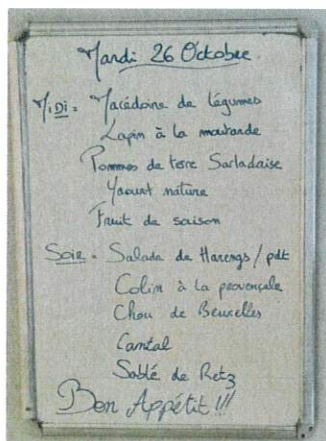 Mardi 26 Octobre
Midi = Macédoine de légumes
Lapin à la moutarde
Pommes de terre Sarladaise
Yaourt nature
Fruit de saison
Soir = Salade de Harengs / pdt
Colin à la provençale
Chou de Bruxelles
Cantal
Sablé de Retz
Bon Appétit !!!